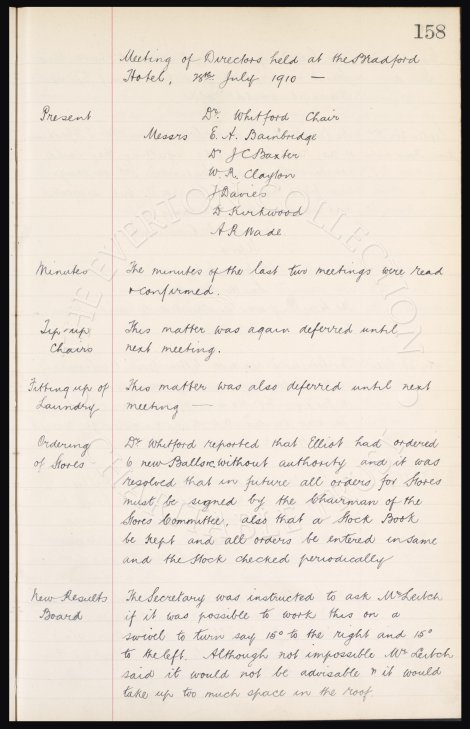 158
Meeting of Directors held at the Bradford
Hotel, 28th July 1910 —
Present
Dr. Whitford Chair
Messrs E. A. Bainbridge
Dr J C Baxter
W. R. Clayton
J Davies
D Kirkwood
A R Wade
Minutes
The minutes of the last two meetings were read
& confirmed.
Tip-up
Chairs
This matter was again deferred until
next meeting.
Fitting up of
Laundry
This matter was also deferred until next
meeting —
Ordering
of Stores
Dr. Whitford reported that Elliot had ordered
6 new Balls without authority and it was
resolved that in future all orders for Stores
must be signed by the Chairman of the
Stores Committee, also that a Stock Book
be kept and all orders be entered in same
and the Stock checked periodically
New Results
Board
The Secretary was instructed to ask Mr Leitch
if it was possible to work this on a
swivel to turn say 15° to the right and 15°
to the left. Although not impossible Mr Leitch
said it would not be advisable " it would
take up too much space in the roof
THE EVERTON COLLECTION